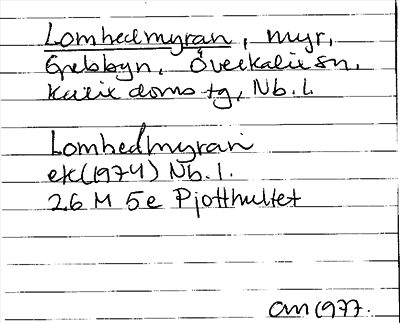 Lomhedmyran, myr,
Grebbyn, Överkalix sn,
Kalix doms tg, Nb. l.
Lomhedmyran
ek (1974) Nb. l.
26 M 5e Pjotthultet
OM 1977.